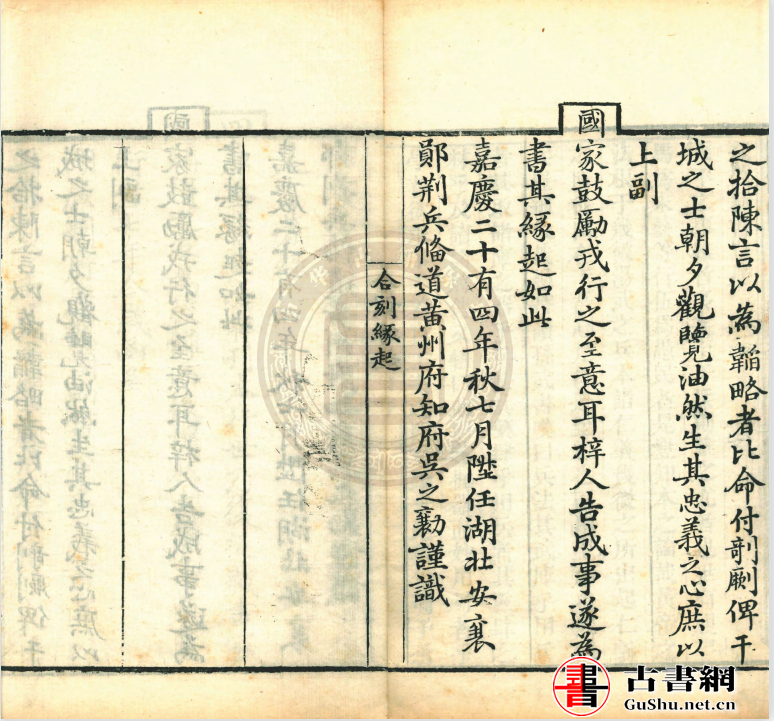 之拾陳言以為韜略者比命付剞劂俾干
城之士朝夕觀覽油然生其忠義之心庶以
上副
國家鼓勵戎行之至意耳梓人告成事遂為
書其緣起如此
嘉慶二十有四年秋七月陞任湖北安襄
鄖荆兵備道黄州府知府吳之勷謹識
合刻緣起
書 古書網
GuShu.net.cn